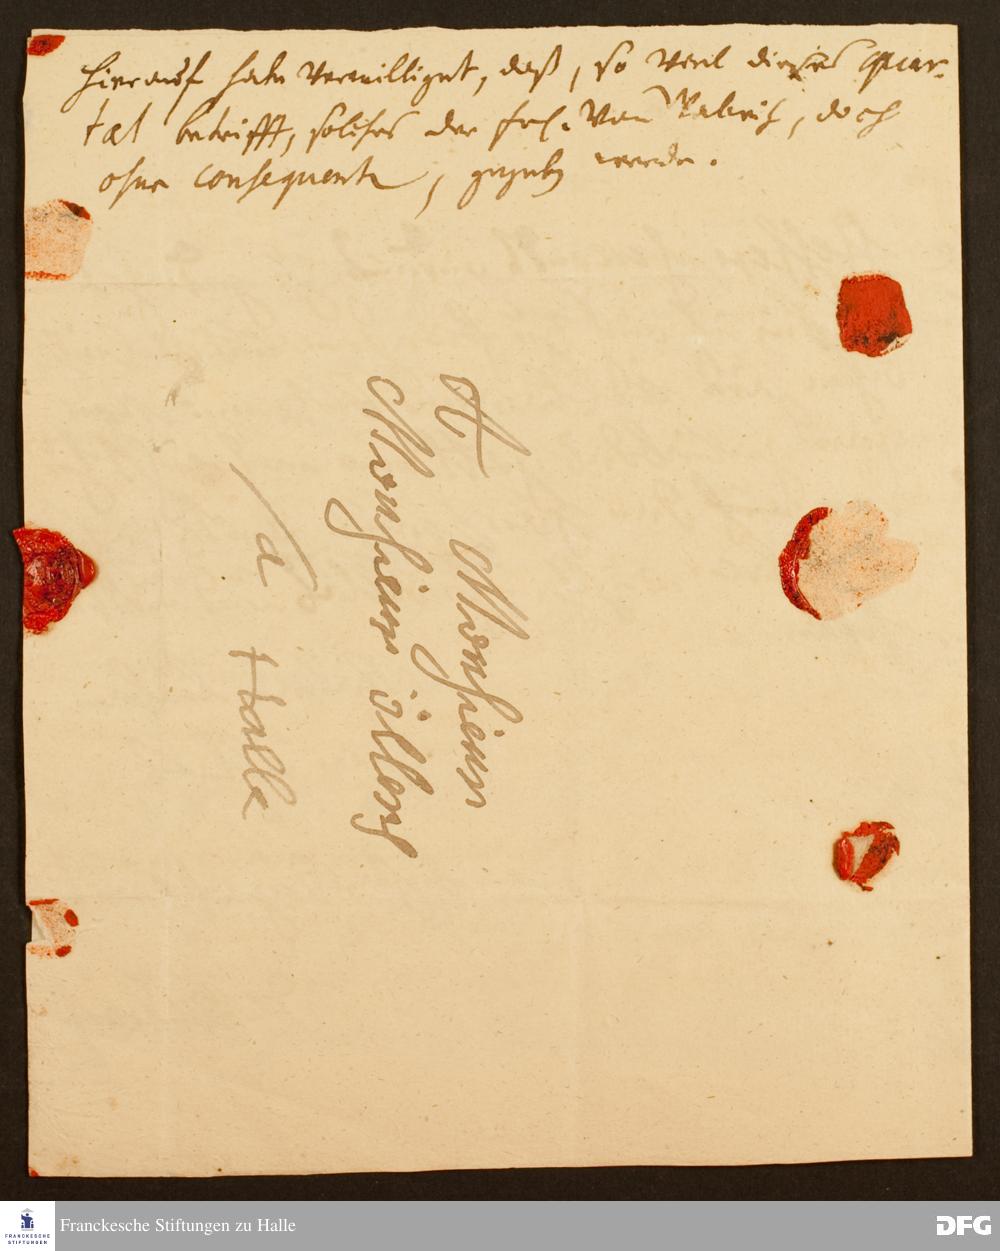 Hierauf habe verwilliget, daß, so viel dieses quar-
tal betrifft, solches der frl. von, doch
ohne consequentz, gegeben werde.
A Monsieur
Monsieur
à Halle
Franckesche Stiftungen zu Halle
FRANCKESCHE
STIFTUNGEN
DFG